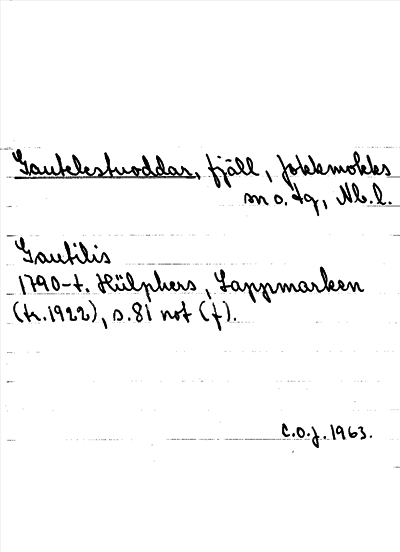 Gautelestuoddar, fjäll, Jokkmokks
sn o. tg, Nb. l.
Gautilis
1790-t. Hülphers, Lappmarken
(tr. 1922), s. 81 not (f).
C.O.J. 1963.